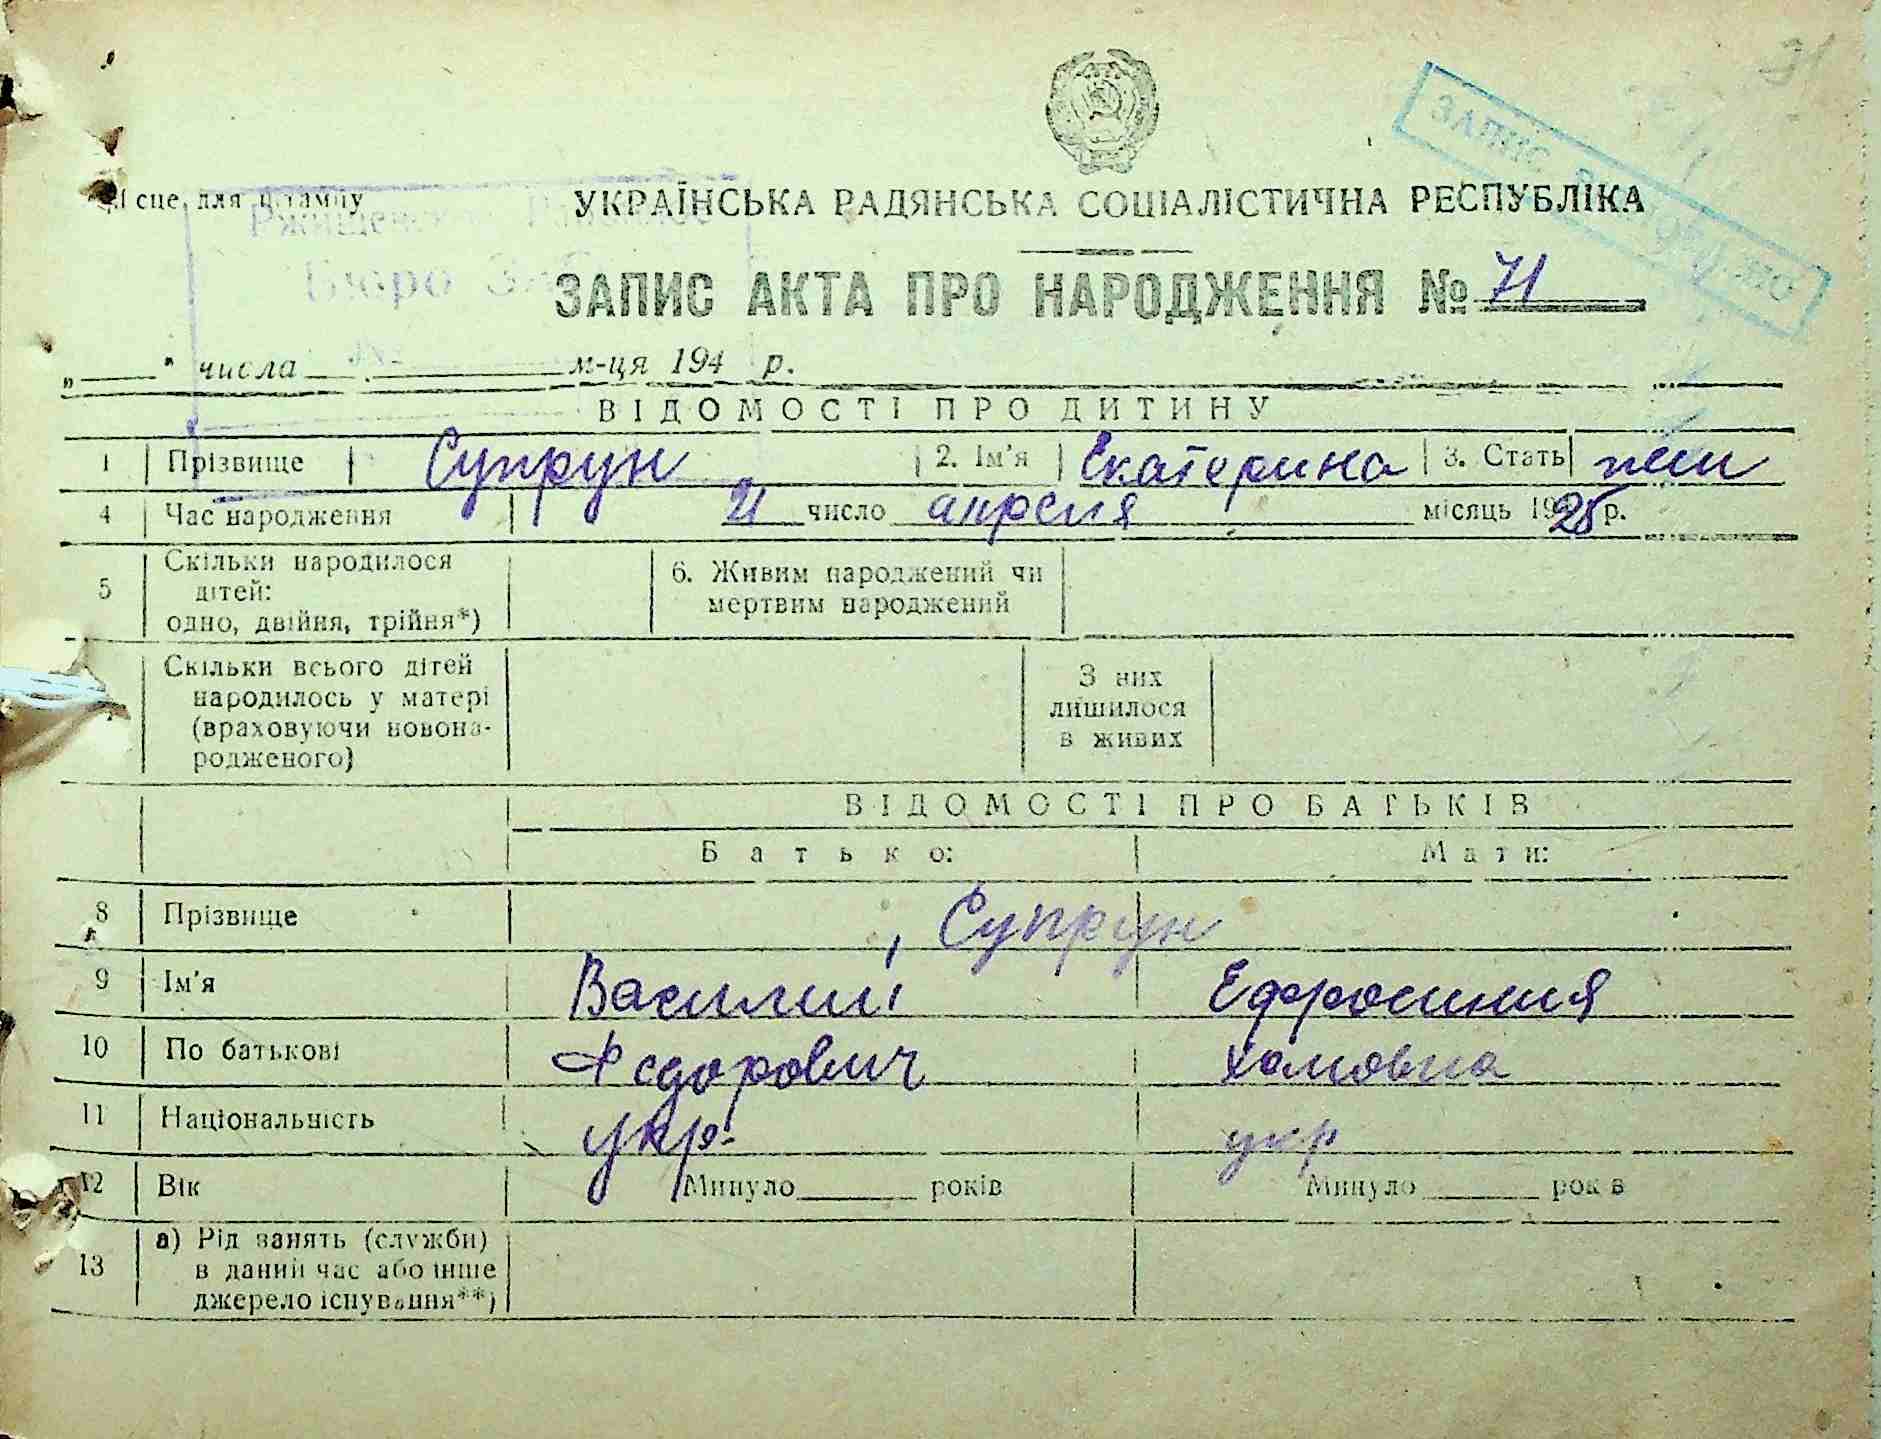 31
ЗАПИС ВІДНОВЛЕНО
Місце для штампу
УКРАЇНСЬКА РАДЯНСЬКА СОЦІАЛІСТИЧНА РЕСПУБЛІКА
Ржищевск
Бюро ЗАГС
ЗАПИС АКТА ПРО НАРОДЖЕННЯ № 71
№
„ " числа м-ця 194 р.
ВІДОМОСТІ ПРО ДИТИНУ
1 Прізвище Супрун 2. Ім'я Екатерина 3. Стать жен
4 Час народження 21 число апреля місяць 1925 р.
5 Скільки народилося дітей: одно, двійня, трійня*) 6. Живим народжений чи мертвим народжений
Скільки всього дітей народилось у матері (враховуючи новонародженого) З них лишилося в живих
ВІДОМОСТІ ПРО БАТЬКІВ
Батько: Мати:
8 Прізвище Супрун
9 Ім'я Василий Ефросиния
10 По батькові Федорович Хамовна
11 Національність укр. укр
12 Вік Минуло років Минуло років
13 а) Рід занять (служби) в даний час або інше джерело існування**)